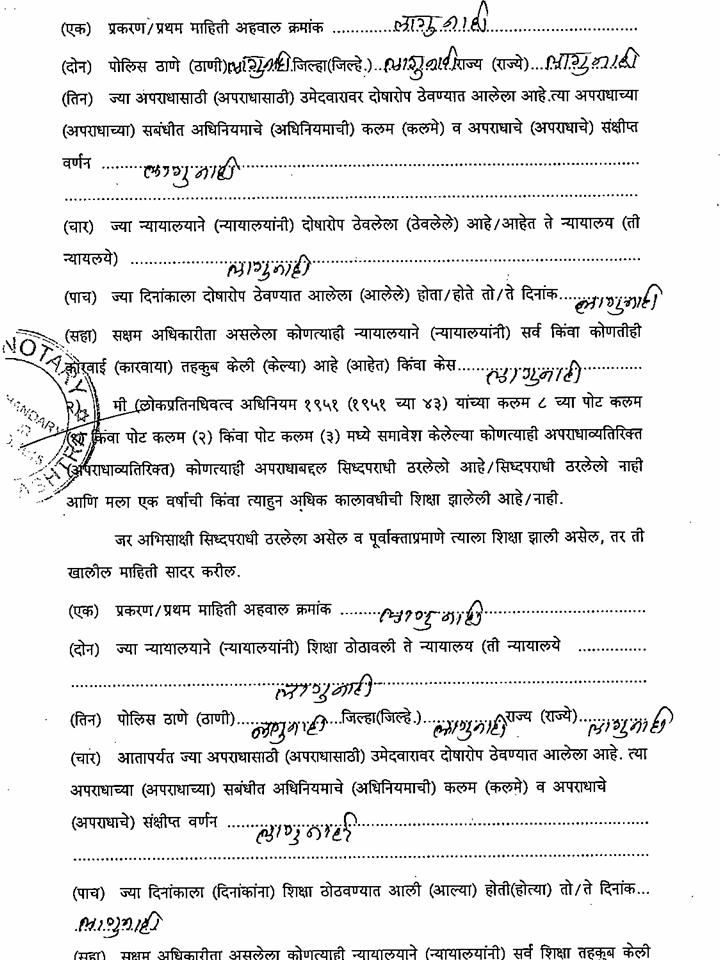 (एक) प्रकरण/प्रथम माहिती अहवाल क्रमांक ......लागु नाही......
(दोन) पोलिस ठाणे (ठाणी)लागु नाही.जिल्हा(जिल्हे.)..लागु नाही राज्य (राज्ये)...लागु नाही
(तिन) ज्या अपराधासाठी (अपराधासाठी) उमेदवारावर दोषारोप ठेवण्यात आलेला आहे.त्या अपराधाच्या
(अपराधाच्या) सबंधीत अधिनियमाचे (अधिनियमाची) कलम (कलमे) व अपराधाचे (अपराधाचे) संक्षीप्त
वर्णन ......लागु नाही......
(चार) ज्या न्यायालयाने (न्यायालयांनी) दोषारोप ठेवलेला (ठेवलेले) आहे/आहेत ते न्यायालय (ती
न्यायलये) ......लागु नाही......
(पाच) ज्या दिनांकाला दोषारोप ठेवण्यात आलेला (आलेले) होता/होते तो/ते दिनांक....लागु नाही
(सहा) सक्षम अधिकारीता असलेला कोणत्याही न्यायालयाने (न्यायालयांनी) सर्व किंवा कोणतीही
कारवाई (कारवाया) तहकुब केली (केल्या) आहे (आहेत) किंवा केस......लागु नाही......
NOTARY
२) मी (लोकप्रतिनधिवत्व अधिनियम १९५१ (१९५१ च्या ४३) यांच्या कलम ८ च्या पोट कलम
(१) किंवा पोट कलम (२) किंवा पोट कलम (३) मध्ये समावेश केलेल्या कोणत्याही अपराधाव्यतिरिक्त
(अपराधाव्यतिरिक्त) कोणत्याही अपराधाबद्दल सिध्दपराधी ठरलेलो आहे/सिध्दपराधी ठरलेलो नाही
आणि मला एक वर्षाची किंवा त्याहुन अधिक कालावधीची शिक्षा झालेली आहे/नाही.
जर अभिसाक्षी सिध्दपराधी ठरलेला असेल व पूर्वाक्ताप्रमाणे त्याला शिक्षा झाली असेल, तर ती
खालील माहिती सादर करील.
(एक) प्रकरण/प्रथम माहिती अहवाल क्रमांक ......लागु नाही......
(दोन) ज्या न्यायालयाने (न्यायालयांनी) शिक्षा ठोठावली ते न्यायालय (ती न्यायालये ...............
......लागु नाही......
(तिन) पोलिस ठाणे (ठाणी)...लागु नाही...जिल्हा(जिल्हे.)..लागु नाही राज्य (राज्ये)..लागु नाही
(चार) आतापर्यत ज्या अपराधासाठी (अपराधासाठी) उमेदवारावर दोषारोप ठेवण्यात आलेला आहे. त्या
अपराधाच्या (अपराधाच्या) सबंधीत अधिनियमाचे (अधिनियमाची) कलम (कलमे) व अपराधाचे
(अपराधाचे) संक्षीप्त वर्णन ......लागु नाही......
(पाच) ज्या दिनांकाला (दिनांकांना) शिक्षा ठोठवण्यात आली (आल्या) होती(होत्या) तो/ते दिनांक...
लागु नाही
(सहा) सक्षम अधिकारीता असलेला कोणत्याही न्यायालयाने (न्यायालयांनी) सर्व शिक्षा तहकुब केली